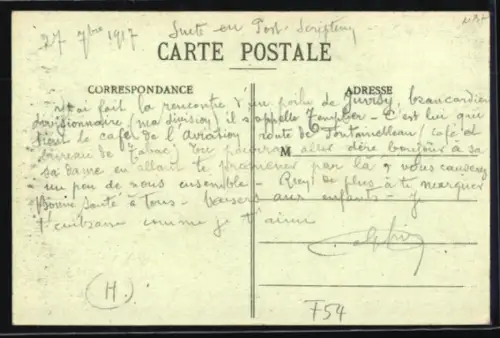 27 7bre 1917 Suite en Post-Scriptum
CARTE POSTALE
CORRESPONDANCE ADRESSE
J'ai fait la rencontre d'un poilu de Juvisy, brancardier
divisionnaire (ma division) il s'appelle Templier - C'est lui qui
tient le café de l'aviation route de Fontainebleau (café et
bureau de Tabac) Tu pourras aller dire bonjour à sa
M
sa dame en allant te promener par là & vous causerez
un peu de nous ensemble - Rien de plus à te marquer
Bonne santé à tous - baisers aux enfants - Je
t'embrasse comme je t'aime
H
F54